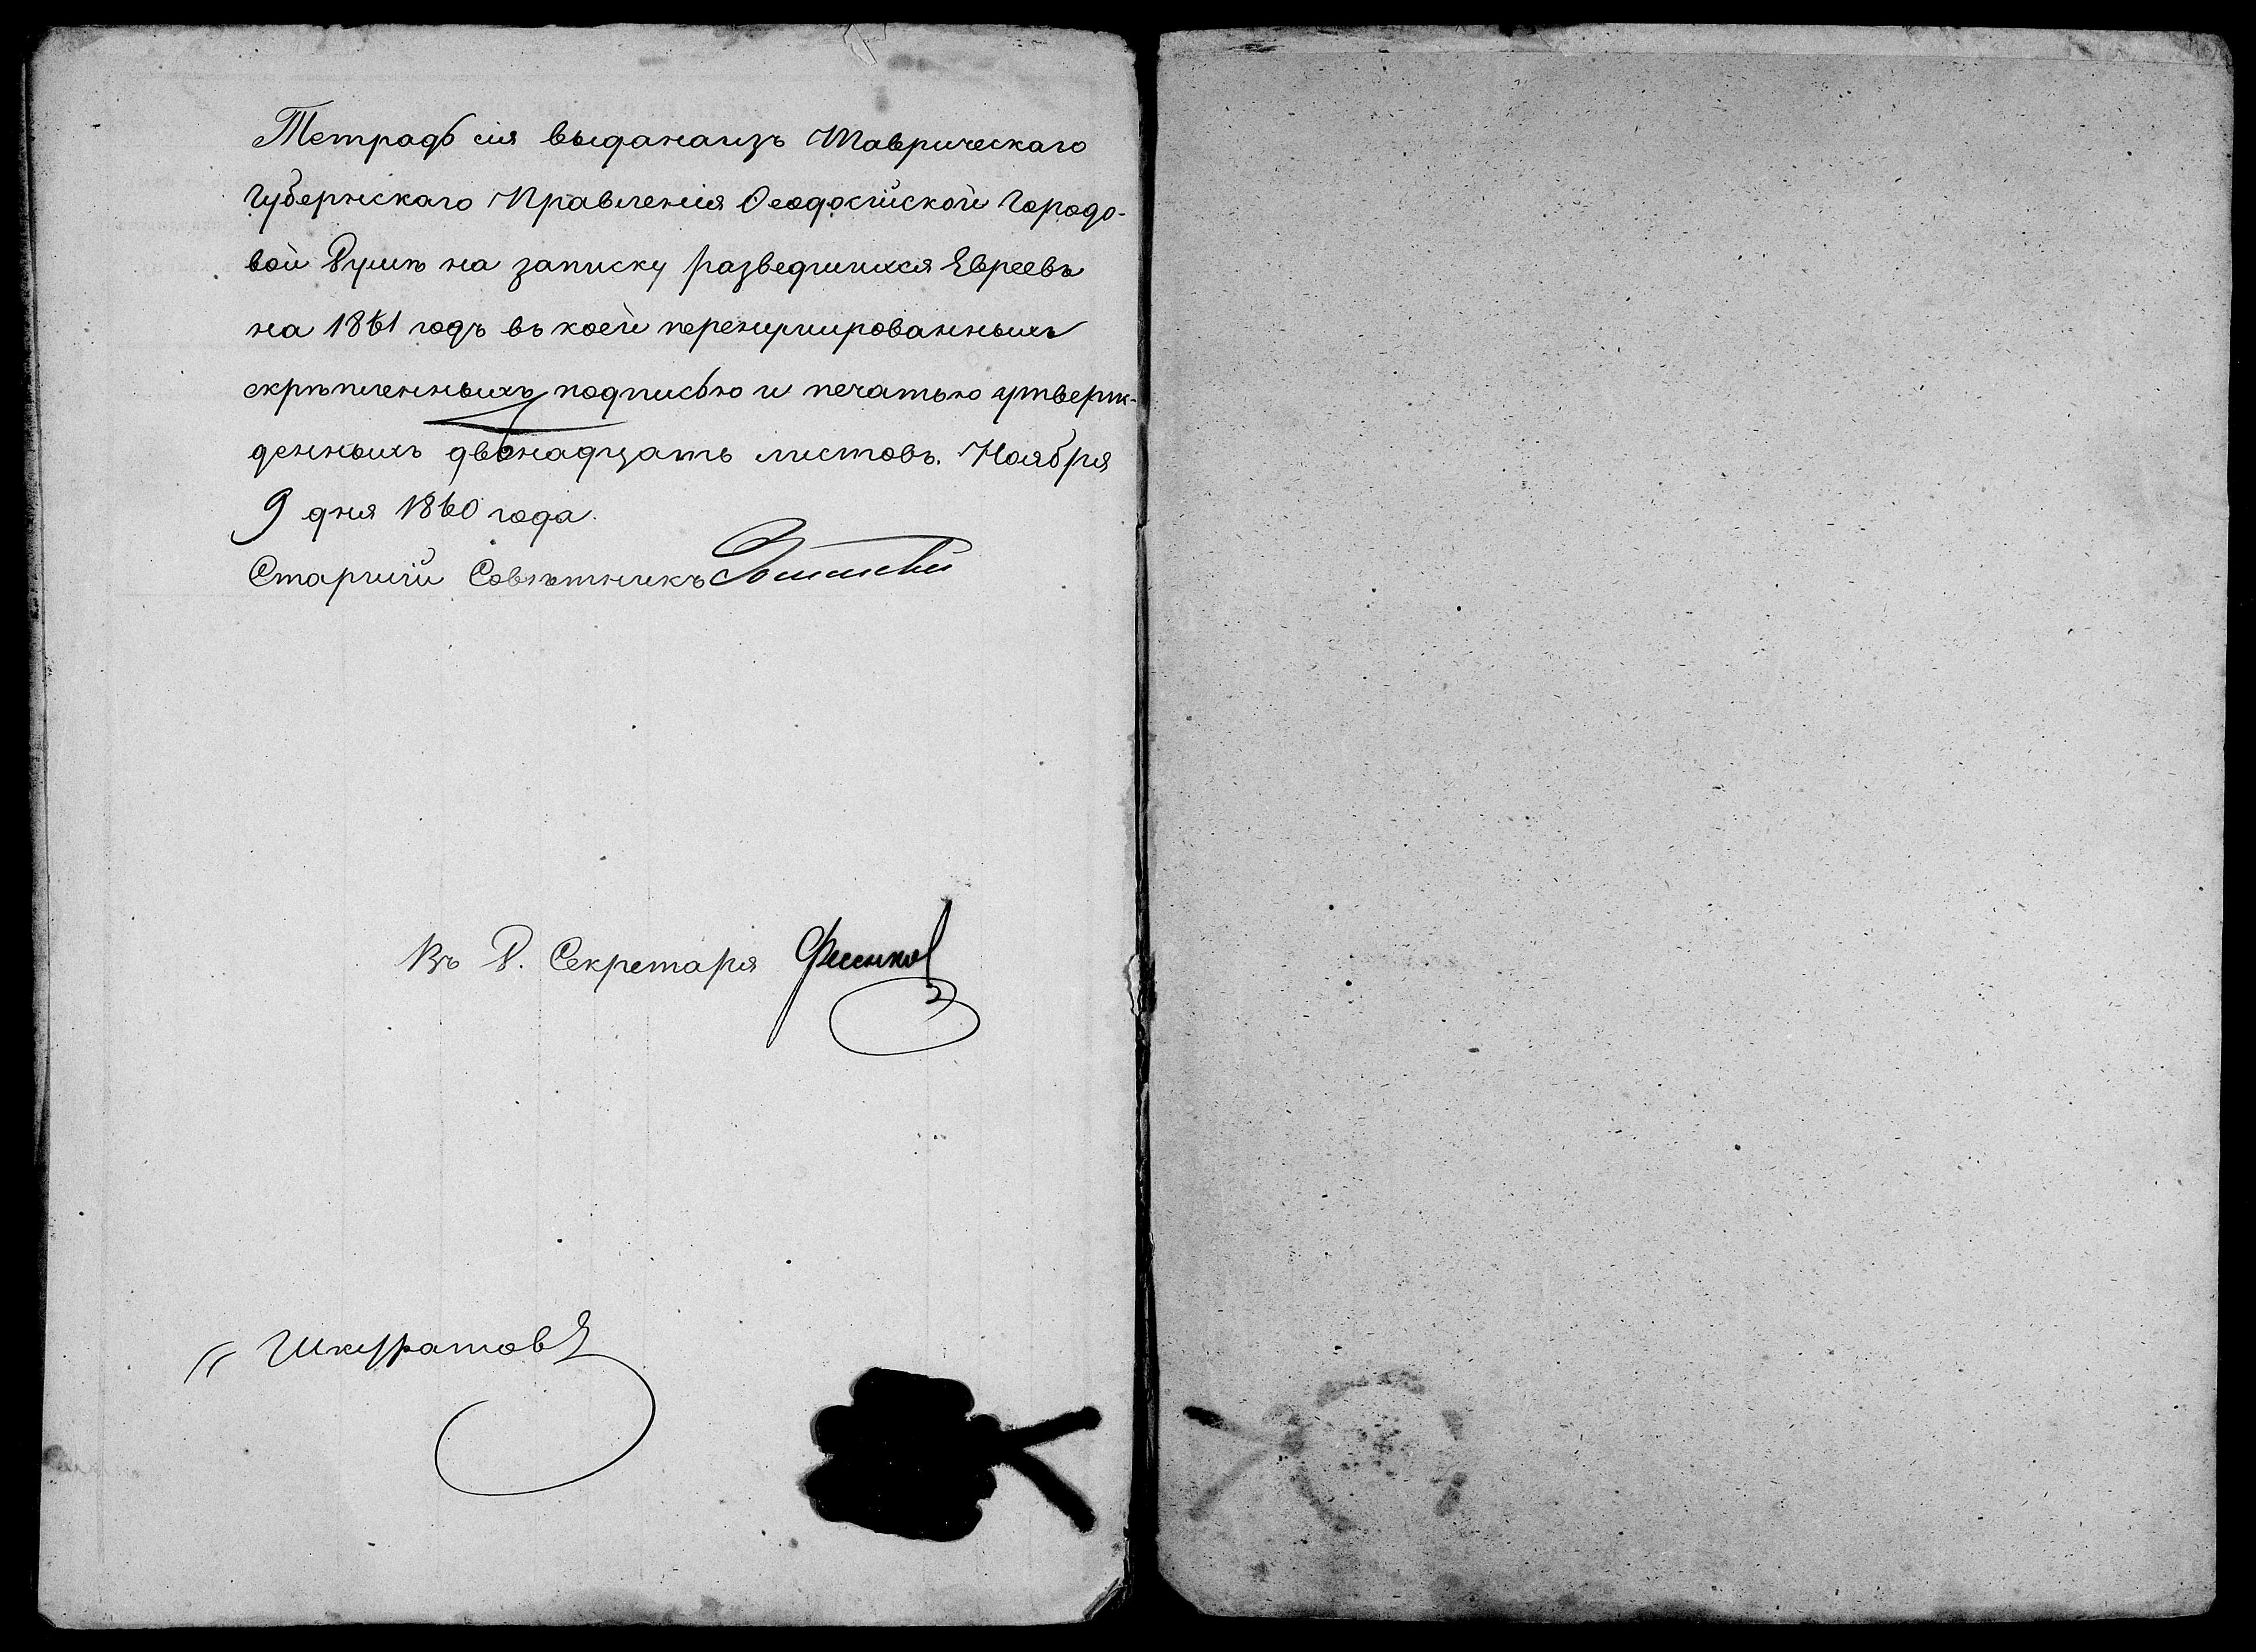 Тетрадь сія выдана изъ Таврическаго
Губернскаго Правленія Ѳеодосійской Городо-
вой Думѣ на записку разведшихся Евреевъ
на 1861 годъ въ коей перенумированныхъ
скрѣпленныхъ подписью и печатью утверж-
денныхъ двѣнадцать листовъ. Ноября
9 дня 1860 года.
Старшій Совѣтникъ
Въ Д. Секретаря
Шкуратовъ